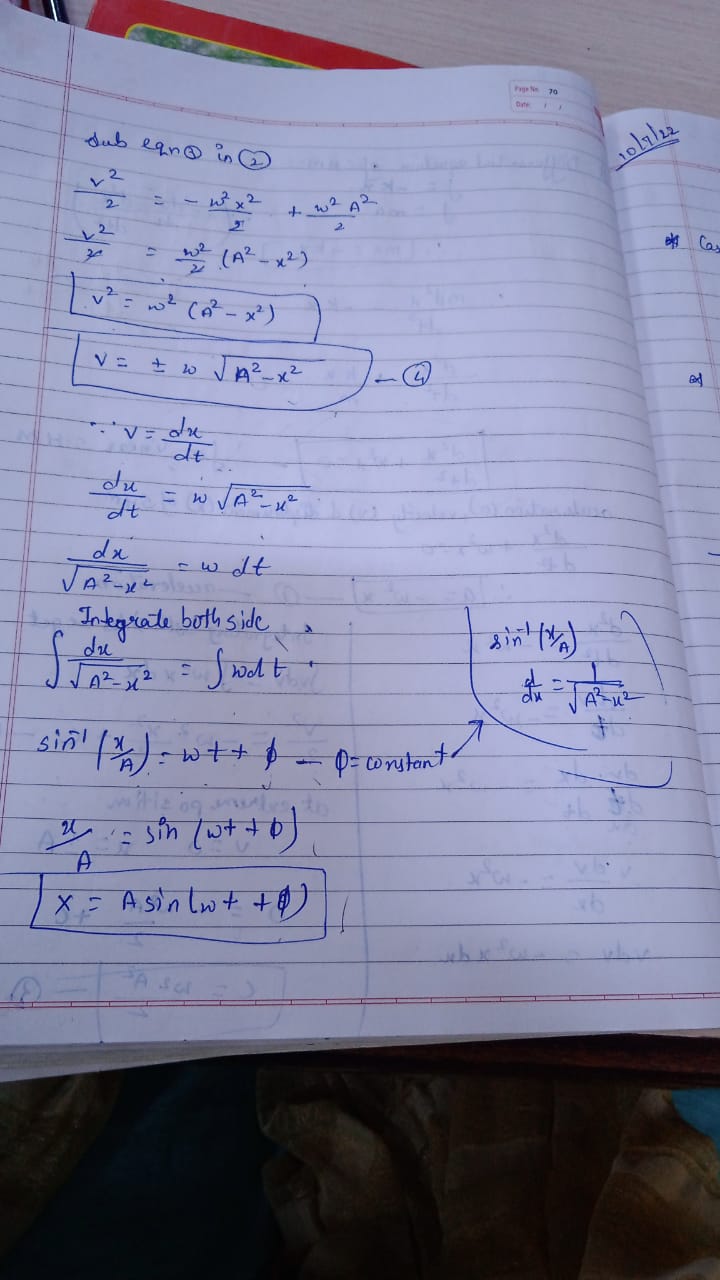 Page No. 70
Date: / /
sub eqn ③ in ②
v²/2 = - w²x²/2 + w²A²/2
v²/2 = w²/2 (A² - x²)
v² = w² (A² - x²)
V = ± w √A²-x² - ④
∵ v = dx/dt
dx/dt = w √A²-x²
dx/√A²-x² = w dt
Integrate both side
∫ dx/√A²-x² = ∫ wdt
sin⁻¹(x/A)
d/dx = 1/√A²-x²
sin⁻¹(x/A) = wt + ϕ - ϕ = constant
x/A = sin (wt + ϕ)
x = A sin (wt + ϕ)
10/7/22
Cas